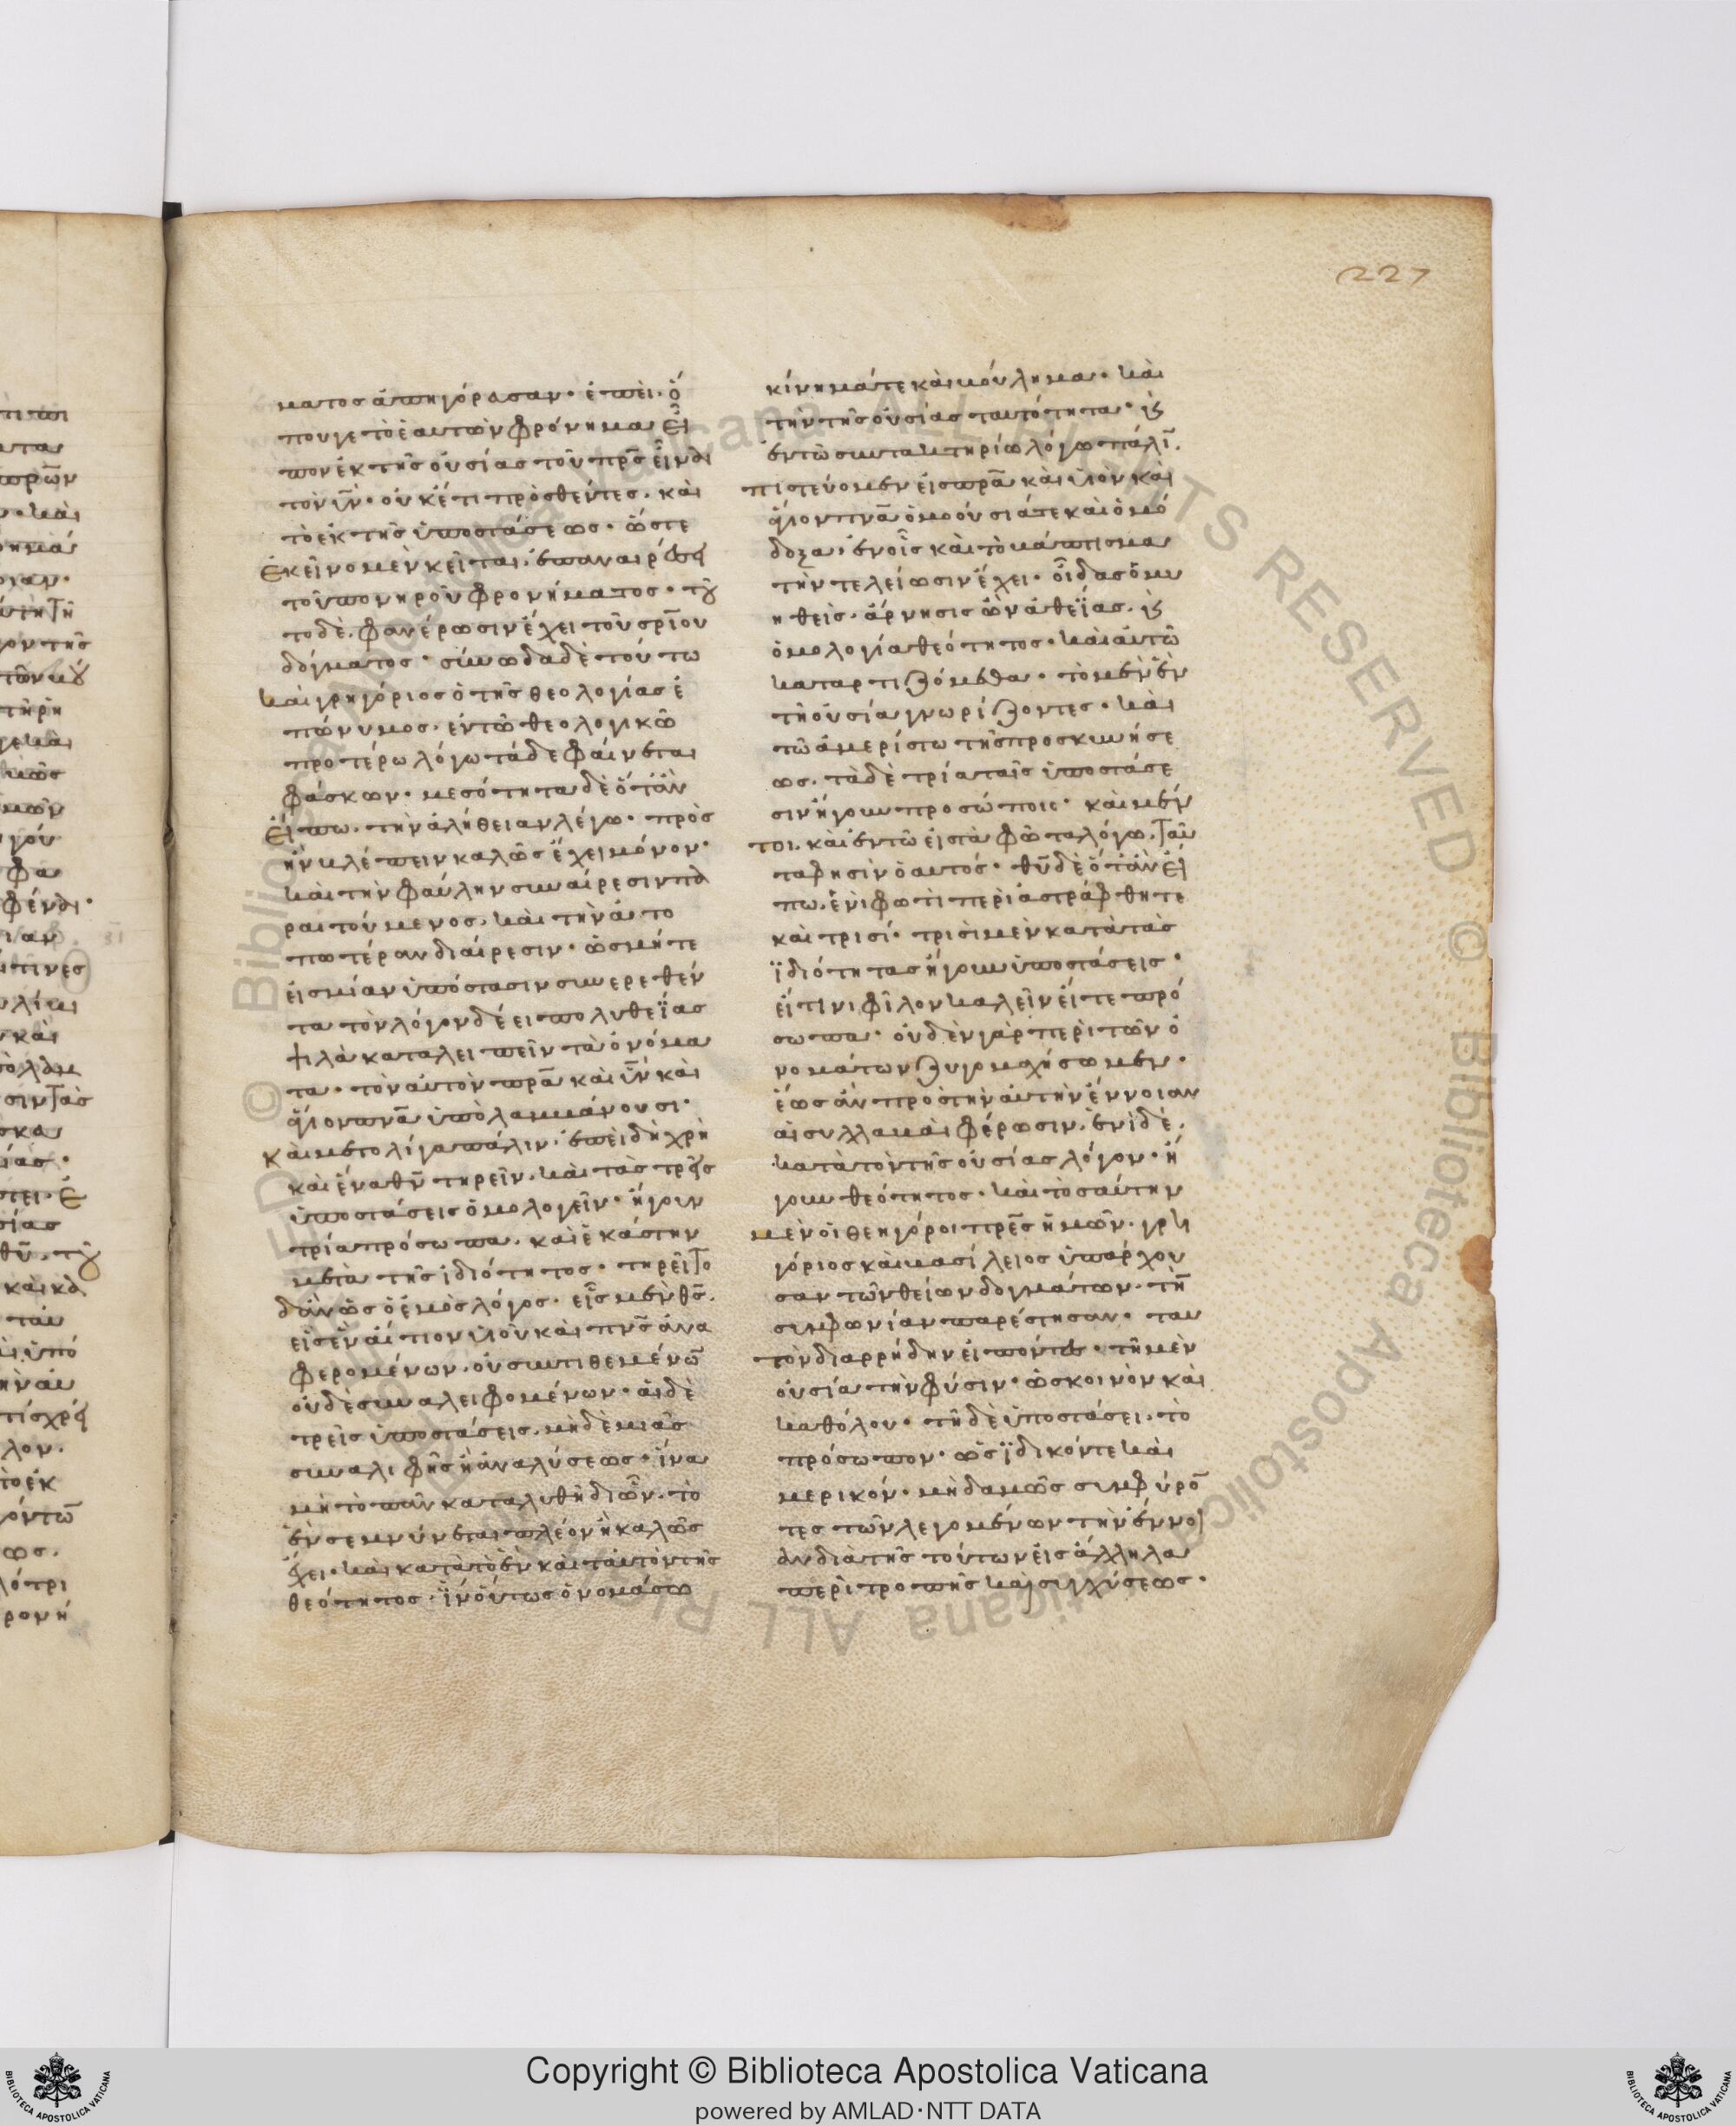 227
ματος ἀπηγόρασαν· ἐπεὶ ὅ
που γε τὸ ἑαυτῶν φρόνημα εἶ
πον ἐκ τῆς οὐσίας τοῦ πρς εἶναι
τὸν υν· οὐκέτι προσθέντες· καὶ
τὸ ἐκ τῆς ὑποστάσεως· ὥστε
ἐκεῖνο μὲν κεῖται, ἐπαναιρέσει
τοῦ πονηροῦ φρονήματος· τοῦ
το δὲ, φανέρωσιν ἔχει τοῦ σρίου
δόγματος· συνωδὰ δὲ τούτω
καὶ γρηγόριος ὁ τῆς θεολογίας ἐ
πώνυμος, ἐν τῶ θεολογικῶ
προτέρω λόγω τάδε φαίνεται
φάσκων· μεσότητα δὲ ὅταν
εἴπω, τὴν ἀλήθειαν λέγω· πρὸς
ἣν βλέπειν καλῶς ἔχει μόνον·
καὶ τὴν φαύλην συναίρεσιν πα
ραιτούμενος, καὶ τὴν ἀτο
πωτέραν διαίρεσιν· ὡς μήτε
εἰς μίαν ὑπόστασιν συνερεθέν
τα τὸν λόγον δέει πολυθεΐας
ψιλὰ καταλειπεῖν τὰ ὀνόμα
τα· τὸν αὐτὸν πρα καὶ υν καὶ
ἅγιον πνα ὑπολαμβάνουσι·
καὶ μετ ολίγα πάλιν· ἐπειδὴ χρὴ
καὶ ἕνα θν τηρεῖν, καὶ τὰς τρεῖς
ὑποστάσεις ὁμολογεῖν· ἤγουν
τρία πρόσωπα, καὶ ἑκάστην
μετὰ τῆς ἰδιότητος· τηρεῖτο
δ' ἂν ὡς ὁ ἐμὸς λόγος· εἷς μὲν θς,
εἰς ἓν αἴτιον υἱοῦ καὶ πνς ἀνα
φερομένων, οὐ συντιθεμένω
οὐδὲ συναλειφομένων· αἱ δὲ
τρεῖς ὑποστάσεις, μηδεμιᾶς
συναλιφῆς ἢ ἀναλύσεως· ἵνα
μὴ τὸ πᾶν καταλυθῆ δι ὧν, τὸ
ἓν σεμνύνεται πλέον ἢ καλῶς
ἔχει· καὶ κατὰ τὸ ἓν καὶ ταυτὸν τῆς
θεότητος· ἵν' οὕτως ὀνομάσω
κίνημά τε καὶ βούλημα· καὶ
τὴν τῆς οὐσίας ταυτότητα· καὶ
ἐν τῶ συντακτηρίω λόγω πάλι,
πιστεύομεν εἰς πρα καὶ υἱὸν καὶ
ἅγιον πνα ὁμοούσιά τε καὶ ὁμό
δοξα· ἐν οἷς καὶ τὸ βάπτισμα
τὴν τελείωσιν ἔχει· οἶδας ὁ μυ
ηθεὶς· ἄρνησις ὢν ἀθεΐας, καὶ
ὁμολογία θεότητος· καὶ αὐτῶ
καταρτιζόμεθα· τὸ μὲν ἓν
τῆ οὐσία γνωρίζοντες· καὶ
τῶ ἀμερίστω τῆς προσκυνήσε
ως, τὰ δὲ τρία ταῖς ὑποστάσε
σιν ἤγουν προσώποις· καὶ μέν
τοι, καὶ ἐν τῶ εἰς τὰ φῶτα λόγω, ταῦ
τα φησὶν ὁ αυτός· θυ δὲ ὅταν εἴ
πω, ἑνὶ φωτὶ περιαστράφθητε
καὶ τρισί· τρισὶ μὲν κατὰ τὰς
ϊδιότητας ἤγουν ὑποστάσεις·
εἴ τινι φίλον καλεῖν εἴτε πρό
σωπα· οὐδὲν γὰρ περὶ τῶν ὀ
νομάτων ζυγομαχήσωμεν·
ἕως ἂν πρὸς τὴν αὐτὴν ἔννοιαν
αἱ συλλαβαὶ φέρωσιν, ἑνὶ δὲ,
κατὰ τὸν τῆς οὐσίας λόγον· ἤ
γουν θεότητος· καὶ τοσαύτην
μὲν οἱ θεηγόροι πρες ἡμῶν· γρη
γόριος καὶ βασίλειος ὑπάρχου
σαν τῶν θείων δογμάτων· τὴ
συμφωνίαν παρέστησαν· ταυ
τὸν διαρρήδην εἰπόντες· τῆ μὲν
οὐσία τὴν φύσιν· ὡς κοινὸν καὶ
καθόλου· τῆ δὲ ὑποστάσει, τὸ
πρόσωπον· ὡς ϊδικόν τε καὶ
μερικόν· μηδαμῶς συμφύρο
τες τῶν λεγομένων τὴν ἔννοι
αν διὰ τῆς τούτων εἰς ἄλληλα
περιτροπῆς καὶ συγχύσεως·
Copyright © Biblioteca Apostolica Vaticana
powered by AMLAD·NTT DATA